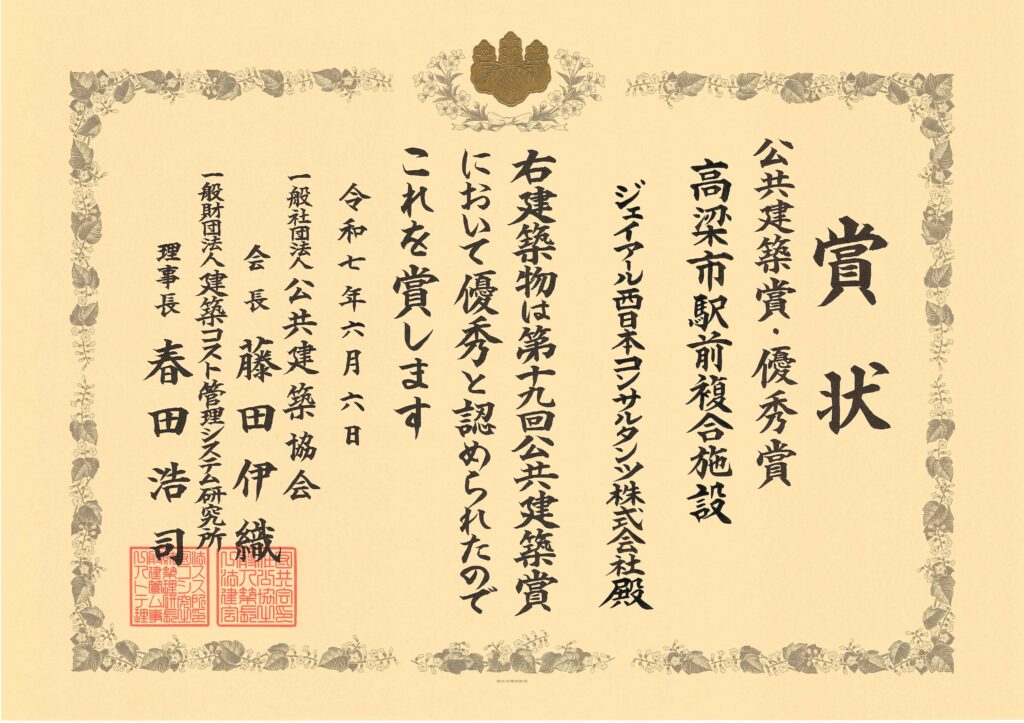 賞状
公共建築賞・優秀賞
高梁市駅前複合施設
ジェイアール西日本コンサルタンツ株式会社殿
右建築物は第十九回公共建築賞
において優秀と認められたので
これを賞します
令和七年六月六日
一般社団法人公共建築協会
会長藤田伊織
一般財団法人建築コスト管理システム研究所
理事長春田浩司